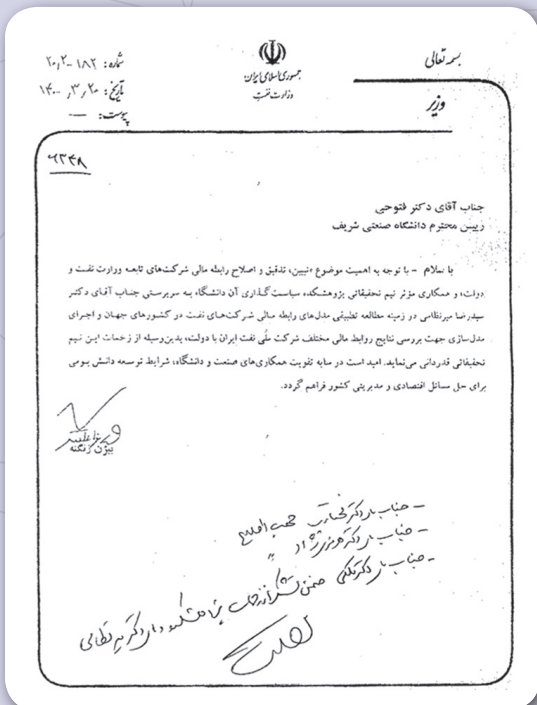 بسمه تعالی
جمهوری اسلامی ایران
وزارت نفت
وزیر
شماره: ۱۸۲-۲۰,۲
تاریخ: ۱۴۰۰,۳,۲۰
پیوست: —
۶۳۴۸
جناب آقای دکتر فتوحی
رییس محترم دانشگاه صنعتی شریف
با سلام - با توجه به اهمیت موضوع «تبیین، تدقیق و اصلاح رابطه مالی شرکت‌های تابعه وزارت نفت و
دولت» و همکاری مؤثر تیم تحقیقاتی پژوهشکده سیاست‌گذاری آن دانشگاه به سرپرستی جناب آقای دکتر
سیدرضا میرنظامی در زمینه مطالعه تطبیقی مدل‌های رابطه مالی شرکت‌های نفت در کشورهای جهان و اجرای
مدل‌سازی جهت بررسی نتایج روابط مالی مختلف شرکت ملّی نفت ایران با دولت، بدین‌وسیله از زحمات این تیم
تحقیقاتی قدردانی می‌نماید. امید است در سایه تقویت همکاری‌های صنعت و دانشگاه، شرایط توسعه دانش بومی
برای حل مسائل اقتصادی و مدیریتی کشور فراهم گردد.
بیژن زنگنه
- جناب دکتر
- جناب دکتر
- جناب دکتر ضمن تشکر از زحمات پژوهشکده و دکتر میرنظامی